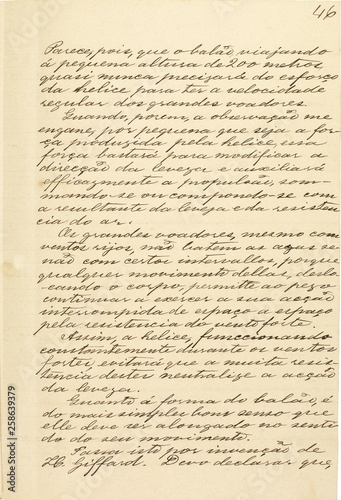 46
Parece, pois, que o balão viajando
á pequena altura de 200 metros
quasi nunca precisará do esforço
da helice para ter a velocidade
regular dos grandes voadores.
Quando, porem, a observação me
engane, por pequena que seja a for-
ça produzida pela helice, essa
força bastará para modificar a
direcção da leveza e auxiliará
efficazmente a propulsão, som-
mando-se ou compondo-se com
a resultante da leveza e da resisten-
cia do ar.
Os grandes voadores, mesmo com
ventos rijos, não batem as azas se-
não com certos intervallos, porque
qualquer movimento dellas, deslo-
cando o corpo, permitte ao pezo
continuar a exercer a sua acção
interrompida de espaço a espaço
pela resistencia do vento forte.
Assim, a helice, funccionando
constantemente durante os ventos
fortes, evitará que a muita resis-
tencia destes neutralize a acção
da leveza.
Quanto á forma do balão, é
do mais simples bom senso que
elle deve ser alongado no senti-
do do seu movimento.
Passa isto por invenção de
H. Giffard. Devo declarar que,
Adobe Stock | #258639379